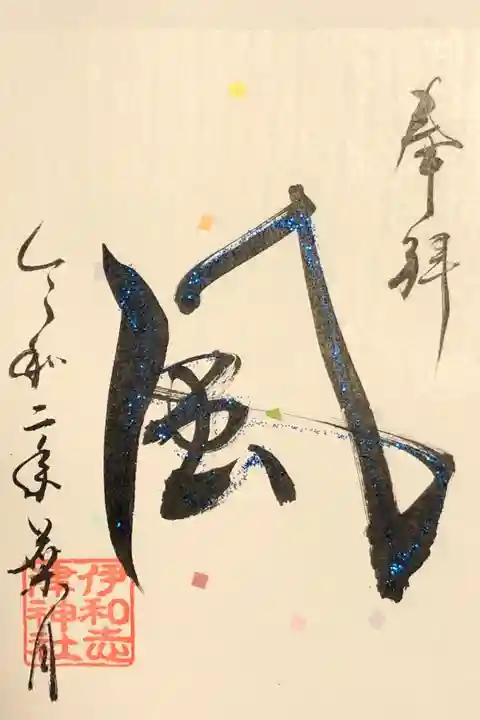 奉拝
風
令和二年葉月
伊和志津神社